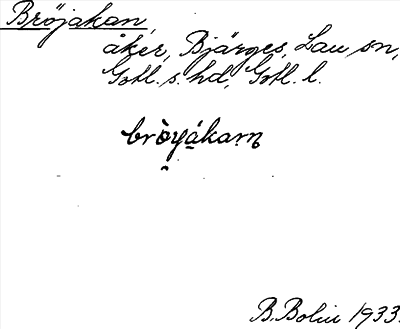 Bröjakan,
åker, Bjärges, Lau sn,
Gotl. s. hd, Gotl. l.
bròyákaṛn
B. Bolin 1933.